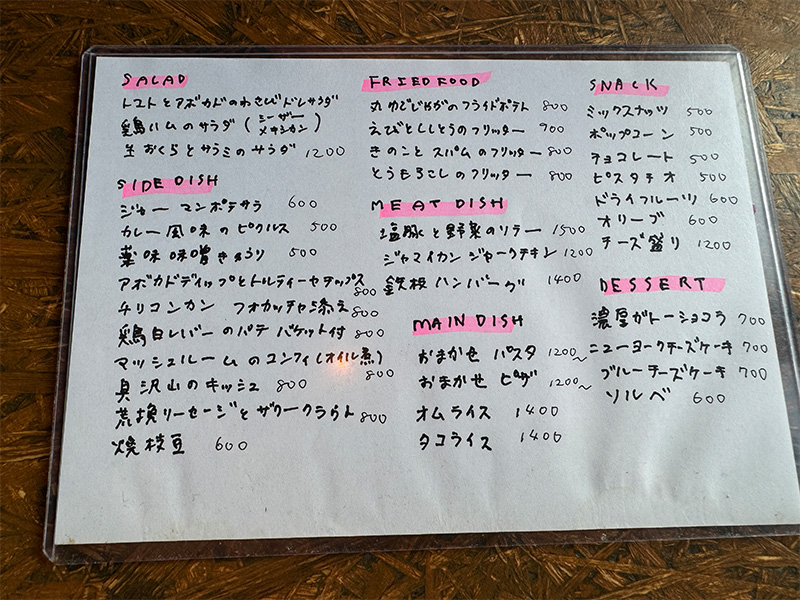 SALAD
トマトとアボカドのわさびドレサラダ
鶏ハムのサラダ (シーザー メキシカン)
生おくらとサラミのサラダ 1200
SIDE DISH
ジャーマンポテサラ 600
カレー風味のピクルス 500
薬味味噌きゅうり 500
アボカドディップとトルティーヤチップス 800
チリコンカン フォカッチャ添え 800
鶏白レバーのパテ バケット付 800
マッシュルームのコンフィ(オイル煮) 800
具沢山のキッシュ 800
荒挽ソーセージとザワークラウト 800
焼枝豆 600
FRIED FOOD
丸ゆでじゃがのフライドポテト 800
えびとししとうのフリッター 900
きのことスパムのフリッター 800
とうもろこしのフリッター 800
MEAT DISH
塩豚と野菜のソテー 1500
ジャマイカンジャークチキン 1200
鉄板ハンバーグ 1400
MAIN DISH
おまかせ パスタ 1200~
おまかせ ピザ 1200~
オムライス 1400
タコライス 1400
SNACK
ミックスナッツ 500
ポップコーン 500
チョコレート 500
ピスタチオ 500
ドライフルーツ 600
オリーブ 600
チーズ盛り 1200
DESSERT
濃厚ガトーショコラ 700
ニューヨークチーズケーキ 700
ブルーチーズケーキ 700
ソルベ 600